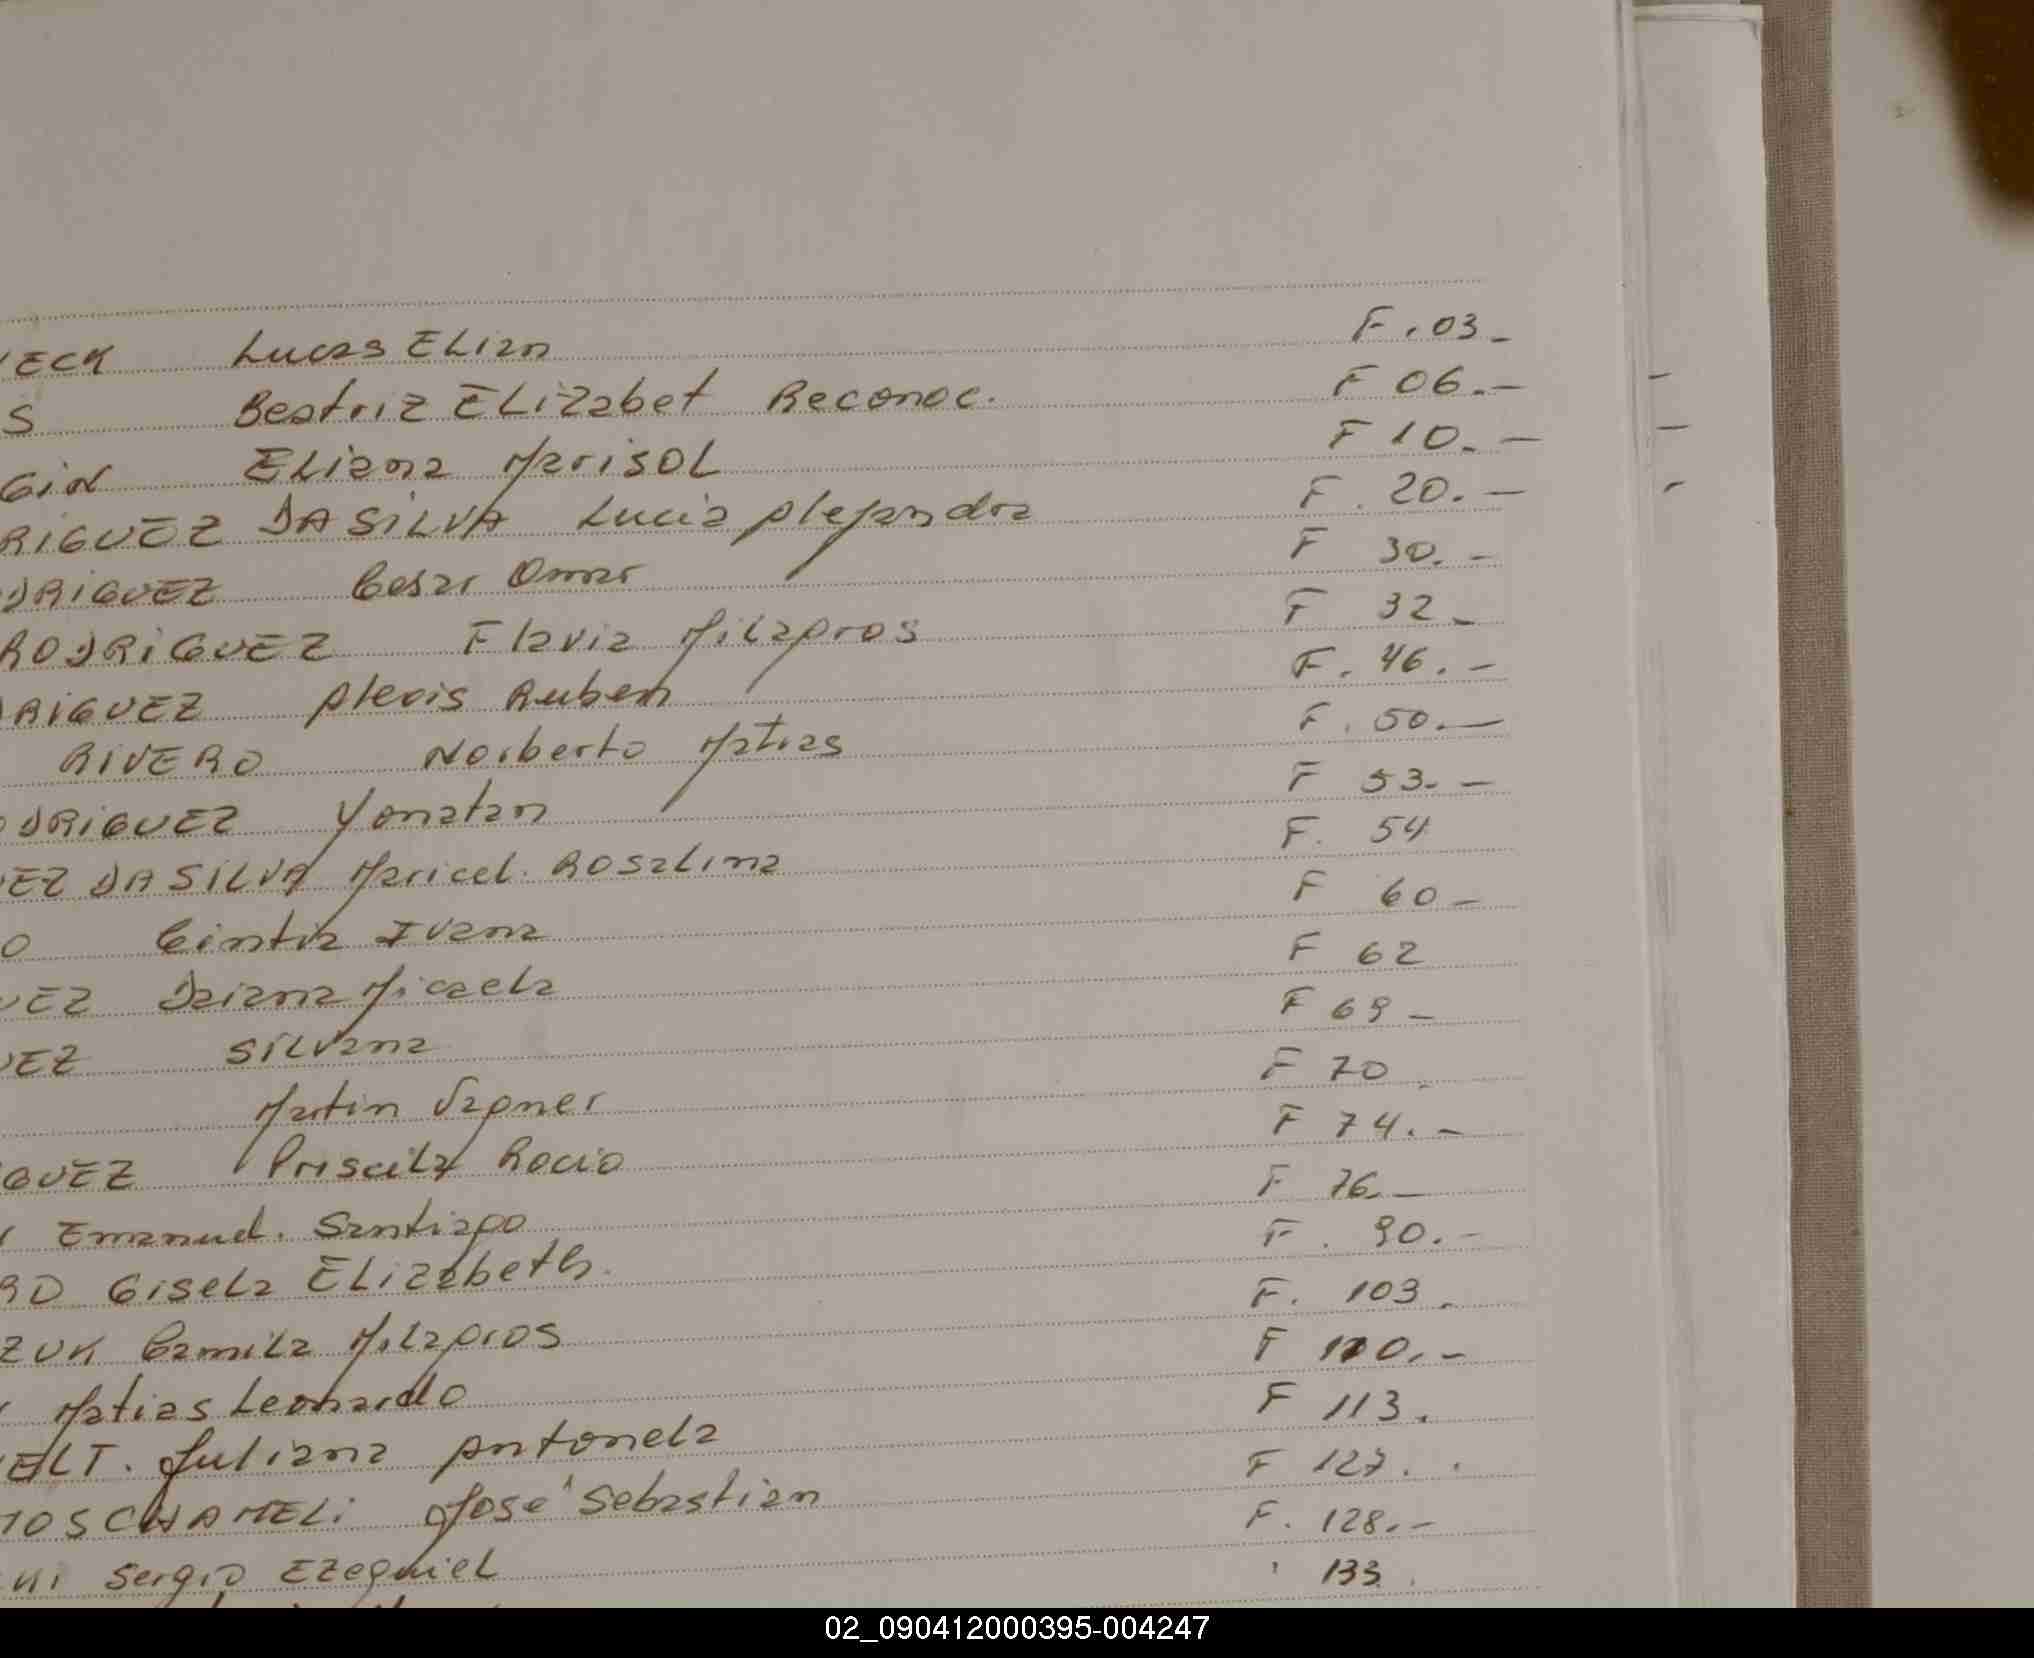 ECK Lucas Elian F. 03_
S Beatriz Elizabet Reconoc. F 06.-
GIN Eliana Marisol F 10.-
RIGUEZ DA SILVA Lucia Alejandra F. 20.-
DRIGUEZ Cesar Omar F 30.-
RODRIGUEZ Flavia Milagros F 32_
RIGUEZ Alexis Ruben F. 46.-
RIVERO Norberto Matias F. 50.-
DRIGUEZ Yonatan F 53.-
EZ DA SILVA Maricel. Rosalina F. 54
O Cintia Ivana F 60-
UEZ Daiana Micaela F 62
UEZ Silvana F 69-
Martin Vagner F 70
GUEZ Priscila Rocio F 74.-
Emanuel. Santiago F 76_
RD Gisela Elizabeth. F. 90.-
ZUK Camila Milagros F. 103.
Matias Leonardo F 110.-
ELT. Juliana Antonela F 113.
MOSCHAMELI José Sebastian F 127.
KI Sergio Ezequiel F. 128.-
133.
02_090412000395-004247